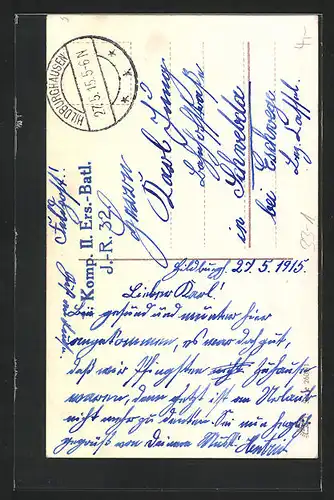 HILDBURGHAUSEN
27.5.15.5-6N
Feldpost!
Komp. II. Ers.-Batl.
J.-R. 32
Herrn
Karl Jung
Bahnhofstraße
in Schwebda
bei Eschwege
Bez. Cassel.
Hildburgh. 27.5.1915.
Lieber Karl!
Bin gesund und munter hier
angekommen, es war doch gut,
daß wir Pfingsten zuhause
waren, denn jetzt ist an Urlaub
nicht mehr zu denken. Sei nun herzlich
gegrüßt von Deinem